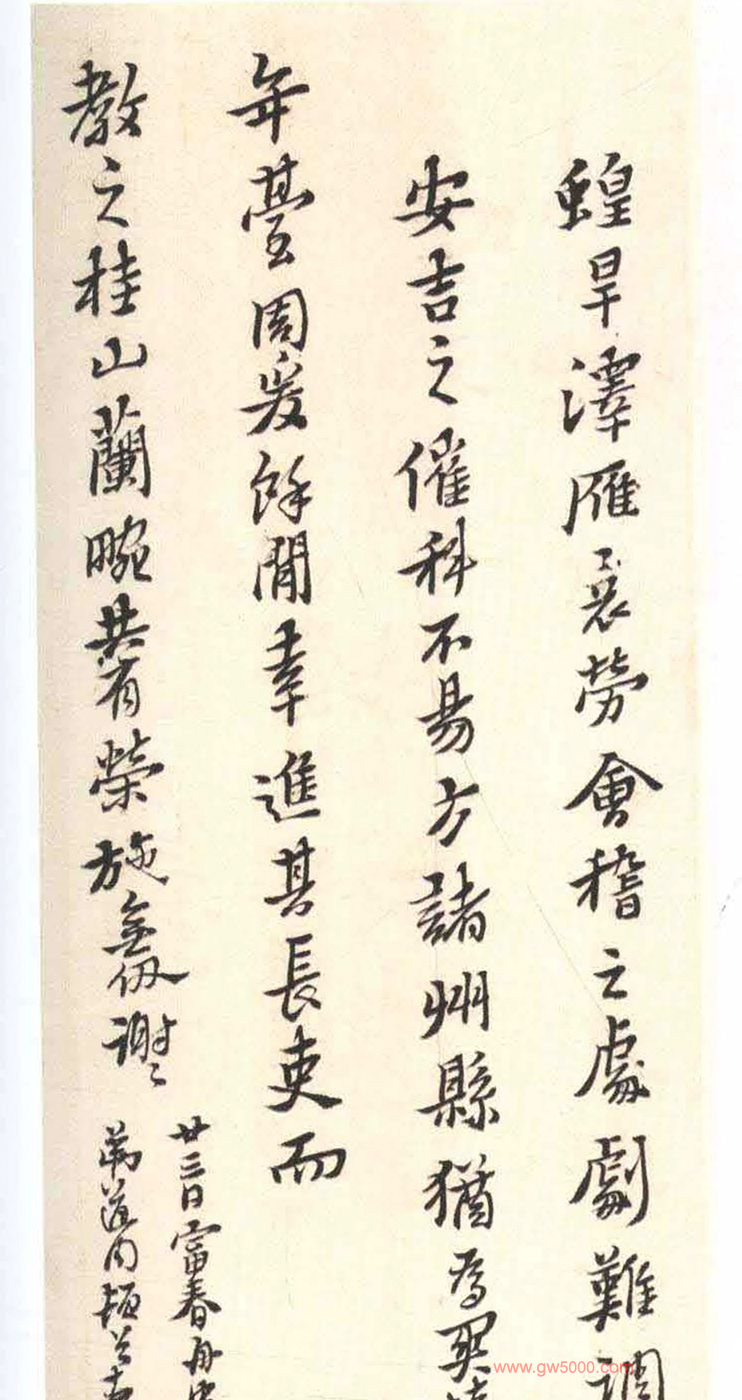 蝗旱澤雁哀勞會稽之處劇難調
安吉之催科不易方諸州縣猶為
年臺周爰餘閒幸進其長吏而
教之桂山蘭畹共有榮施無仞謝〻
廿三日富春舟
道內
www.gw5000.com